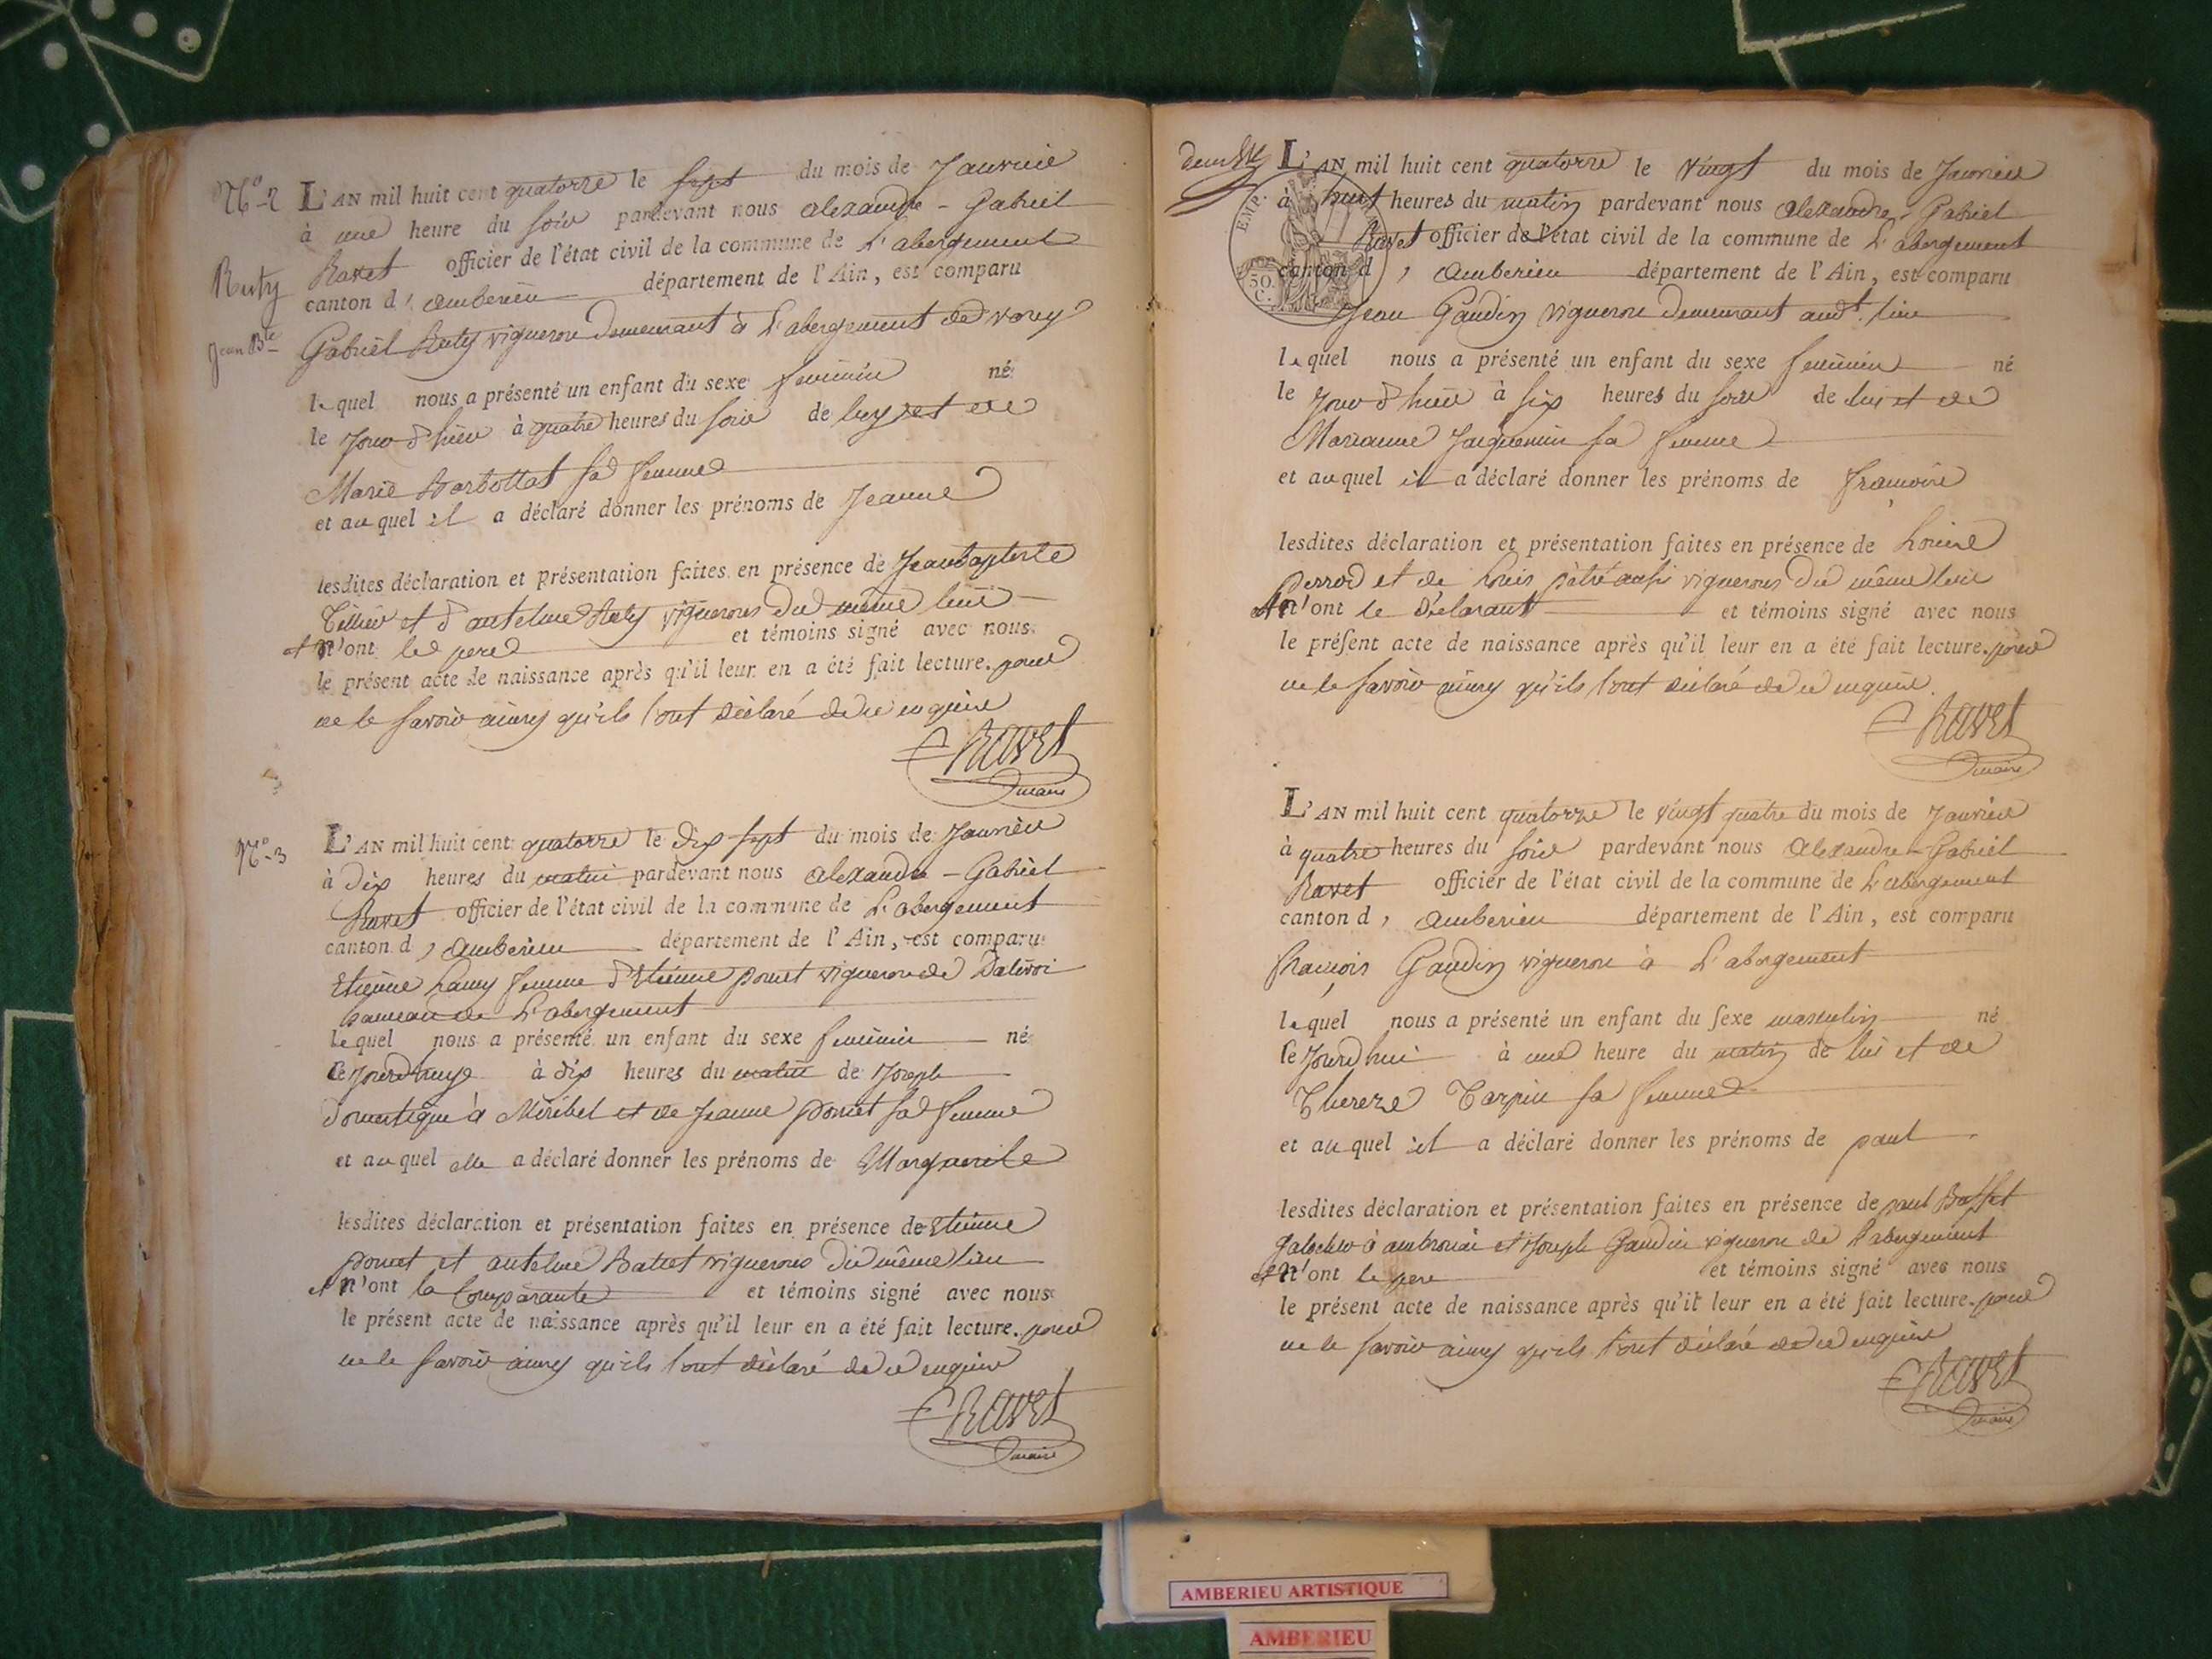 N° 2
L'AN mil huit cent quatorze le sept du mois de Janvier
à une heure du soir pardevant nous alexandre - Gabriel
Ravet officier de l'état civil de la commune de L'abergement
canton d' amberieu département de l'Ain, est comparu
Ruty
Jean Bte
Gabriel Ruty vigneron demeurant à L'abergement de varey
lequel nous a présenté un enfant du sexe feminin né
le jour d'hier à quatre heures du soir de luy et de
Marie Barbottat sa femme
et au quel il a déclaré donner les prénoms de Jeanne
lesdites déclaration et présentation faites en présence de Jeanbaptiste
Tillier et d'antelme Ruty vignerons du même lieu
et n'ont le pere et témoins signé avec nous
le présent acte de naissance après qu'il leur en a été fait lecture. pour
ne le savoir ainsy qu'ils l'ont déclaré de ce enquis
Ravet
maire
N° 3
L'AN mil huit cent quatorze le dix sept du mois de Janvier
à dix heures du matin pardevant nous alexandre - Gabriel
Ravet officier de l'état civil de la commune de L'abergement
canton d' amberieu département de l'Ain, est comparu
Etienne femme d'Etienne pomet vigneron de
hameau de L'abergement
lequel nous a présenté un enfant du sexe feminin né
cejourdhuy à dix heures du matin de Joseph
domestique à Miribel et de Jeanne pomet sa femme
et au quel elle a déclaré donner les prénoms de Marguerite
lesdites déclaration et présentation faites en présence de Etienne
pomet et antelme vignerons du même lieu
et n'ont la Comparante et témoins signé avec nous
le présent acte de naissance après qu'il leur en a été fait lecture. pour
ne le savoir ainsy qu'ils l'ont déclaré de ce enquis
Ravet
maire
L'AN mil huit cent quatorze le vingt du mois de Janvier
à huit heures du matin pardevant nous alexandre - Gabriel
Ravet officier de l'état civil de la commune de L'abergement
canton d' amberieu département de l'Ain, est comparu
EMP.
50.
C.
Jean Gaudin vigneron demeurant audt. lieu
lequel nous a présenté un enfant du sexe feminin né
le jour d'hier à six heures du soir de lui et de
Marianne Jacquemin sa femme
et au quel il a déclaré donner les prénoms de françoise
lesdites déclaration et présentation faites en présence de
et de Louis vignerons du même lieu
et n'ont le déclarant et témoins signé avec nous
le préſent acte de naissance après qu'il leur en a été fait lecture. pour
ne le savoir ainsy qu'ils l'ont déclaré de ce enquis.
Ravet
maire
L'AN mil huit cent quatorze le vingt quatre du mois de Janvier
à quatre heures du soir pardevant nous alexandre - Gabriel
Ravet officier de l'état civil de la commune de L'abergement
canton d' amberieu département de l'Ain, est comparu
françois Gaudin vigneron à L'abergement
lequel nous a présenté un enfant du ſexe masculin né
cejourdhui à une heure du matin de lui et de
Thereze Tarpin sa femme
et au quel il a déclaré donner les prénoms de paul
lesdites déclaration et présentation faites en présence de paul
à ambronai et Joseph Gaudin vigneron de L'abergement
et n'ont le pere et témoins signé avec nous
le présent acte de naissance après qu'il leur en a été fait lecture. pour
ne le savoir ainsy qu'ils l'ont déclaré de ce enquis
Ravet
maire
AMBERIEU ARTISTIQUE
AMBERIEU